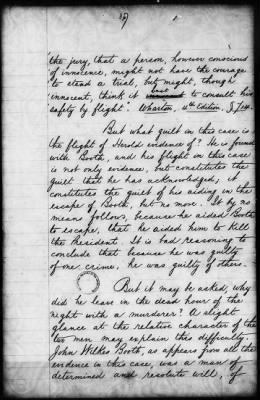 the jury, that a person, however conscious
of innocence, might not have the courage
to stand a trial, but might, though
innocent, think it best to consult his
safety by flight". Wharton, 4th Edition, § 700
But what guilt in this case is
the flight of Herold evidence of? He is found
with Booth, and his flight in this case
is not only evidence, but constitutes the
guilt that he has acknowledged; it
constitutes the guilt of his aiding in the
escape of Booth, but no more. It by no
means follows, because he aided Booth
to escape, that he aided him to kill
the President. It is bad reasoning to
conclude that because he was guilty
of one crime, he was guilty of others.
But it may be asked, why
did he leave in the dead hour of the
night with a murderer? A slight
glance at the relative character of the
two men may explain this difficulty.
John Wilkes Booth, as appears from all the
evidence in this case, was a man of
determined and resolute will, of